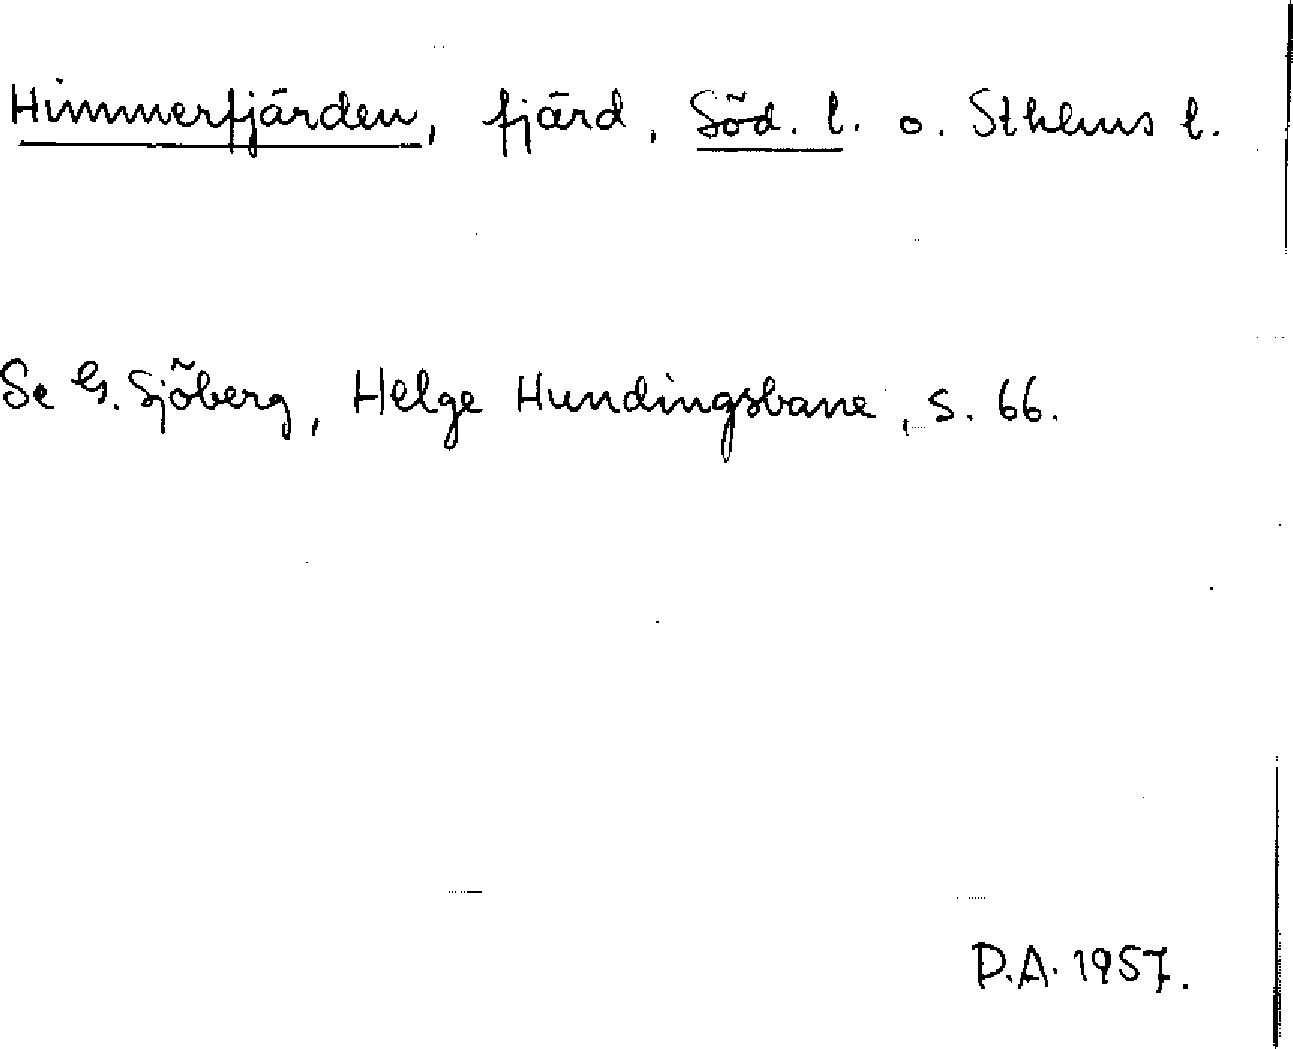 Himmerfjärden, fjärd, Söd. l. o. Sthlms l.
Se G. Sjöberg, Helge Hundingsbane, s. 66.
P.A. 1957.